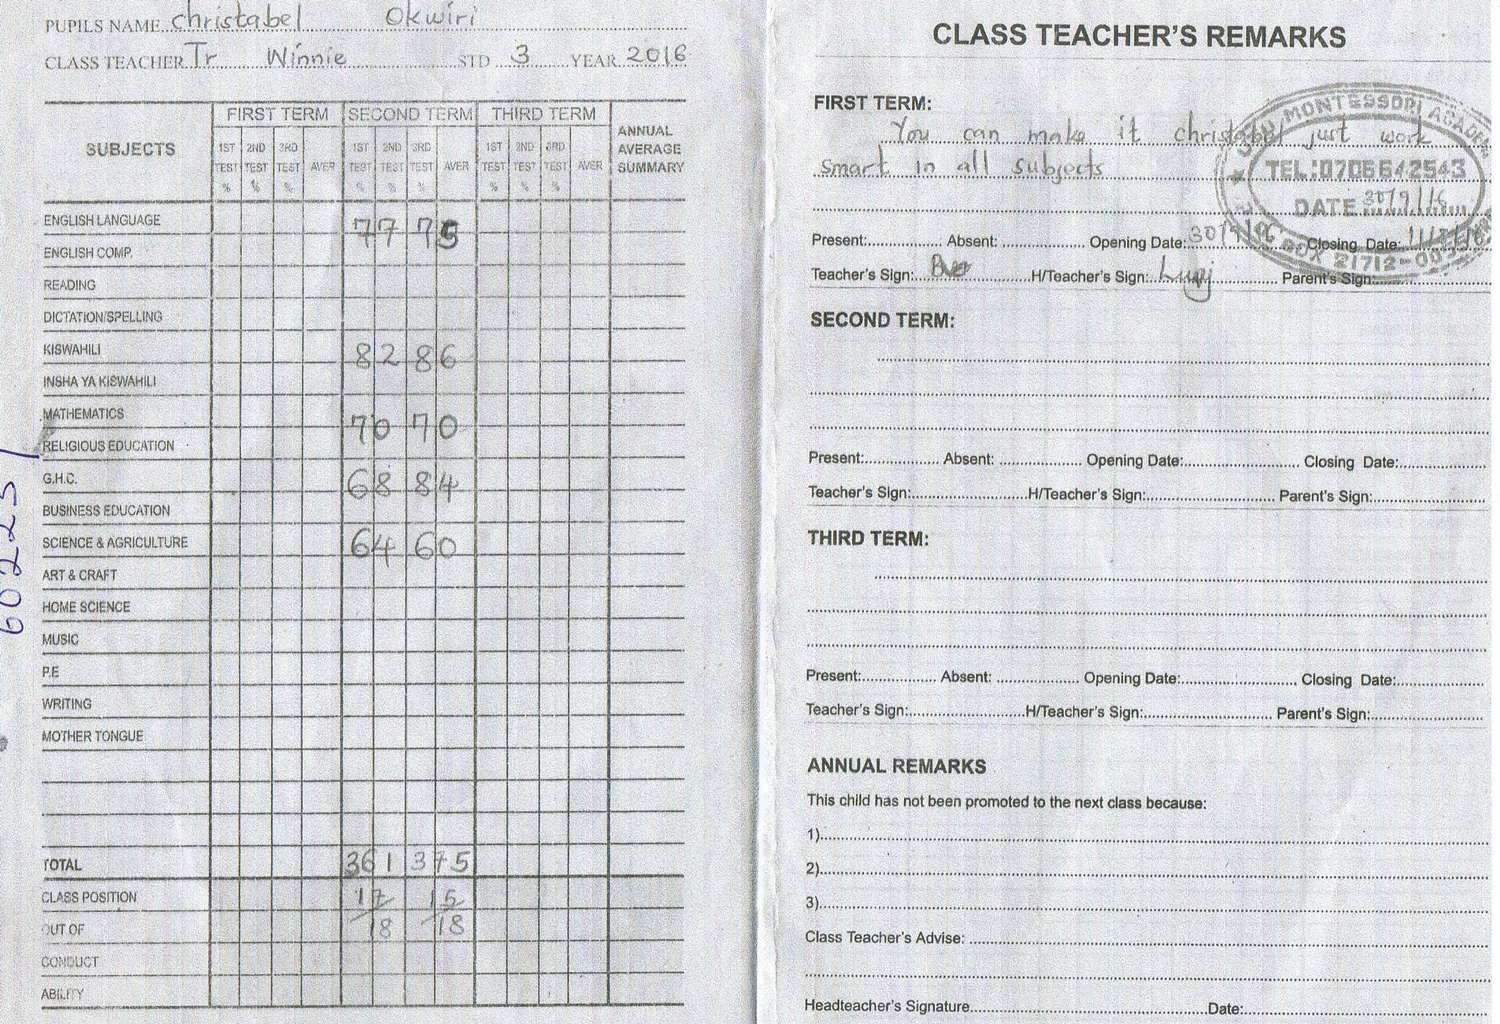 PUPILS NAME christabel Okwiri
CLASS TEACHER Tr Winnie STD 3 YEAR 2016
SUBJECTS
FIRST TERM SECOND TERM THIRD TERM ANNUAL AVERAGE SUMMARY
1ST TEST % 2ND TEST % 3RD TEST % AVER 1ST TEST % 2ND TEST % 3RD TEST % AVER 1ST TEST % 2ND TEST % 3RD TEST % AVER
ENGLISH LANGUAGE 77 75
ENGLISH COMP.
READING
DICTATION/SPELLING
KISWAHILI 82 86
INSHA YA KISWAHILI
MATHEMATICS 70 70
RELIGIOUS EDUCATION
G.H.C. 68 84
BUSINESS EDUCATION
SCIENCE & AGRICULTURE 64 60
ART & CRAFT
HOME SCIENCE
MUSIC
P.E
WRITING
MOTHER TONGUE
TOTAL 361 375
CLASS POSITION 17 15
OUT OF 18 18
CONDUCT
ABILITY
602251
CLASS TEACHER'S REMARKS
FIRST TERM:
You can make it christabel just work
smart in all subjects
MONTESSORI ACADEMY
TEL:0706642543
DATE 30/9/16
BOX 21712-00
Present: Absent: Opening Date: Closing Date:
Teacher's Sign: H/Teacher's Sign: Parent's Sign:
SECOND TERM:
Present: Absent: Opening Date: Closing Date:
Teacher's Sign: H/Teacher's Sign: Parent's Sign:
THIRD TERM:
Present: Absent: Opening Date: Closing Date:
Teacher's Sign: H/Teacher's Sign: Parent's Sign:
ANNUAL REMARKS
This child has not been promoted to the next class because:
1)
2)
3)
Class Teacher's Advise:
Headteacher's Signature Date: